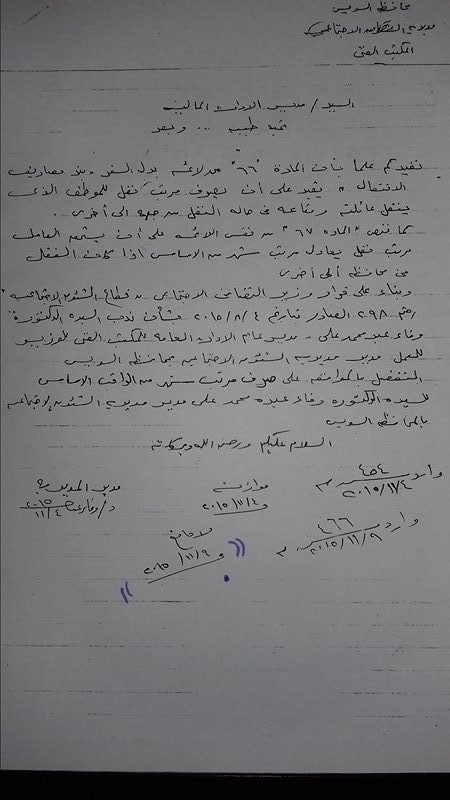 محافظة السويس
مديرية التضامن الاجتماعي
المكتب الفنى
السيد / مدير الادارة المالية
تحية طيبة ... وبعد
نفيدكم علما بأن المادة "٦٦" من لائحة بدل السفر ، بند مصاريف
الانتقال على أن يصرف مرتب نقل للموظف الذى
ينقل عائلته ومتاعه فى حالة النقل من جهة الى أخرى .
كما تنص المادة "٦٧" من نفس اللائحة على أن يستحق العامل
مرتب نقل يعادل مرتب شهر من الاساس اذا كان النقل
من محافظة الى أخرى
وبناء على قرار وزير التضامن الاجتماعى قطاع الشئون الاجتماعية
رقم ٢٩٨ الصادر بتاريخ ٢٠١٥/٨/٤ بشأن ندب السيدة الدكتورة
وفاء عبده محمد على - مدير عام الادارة العامة للمكتب الفنى للوزير
للعمل مدير مديرية الشئون الاجتماعية بمحافظة السويس
التفضل بالموافقة على صرف مرتب شهر من الراتب الاساسى
للسيدة الدكتورة وفاء عبده محمد على مدير مديرية الشئون الاجتماعية
بالمحافظة السويس
السلام عليكم ورحمة الله وبركاته
وارد ٤٥٤
٢٠١٥/١١/٤
موازنة
٢٠١٥/١١/٤
مدير المديرية
د/ وفاء عبده
٢٠١٥/١١/٤
وارد ٤٦٦
٢٠١٥/١١/٩
٢٠١٥/١١/٩